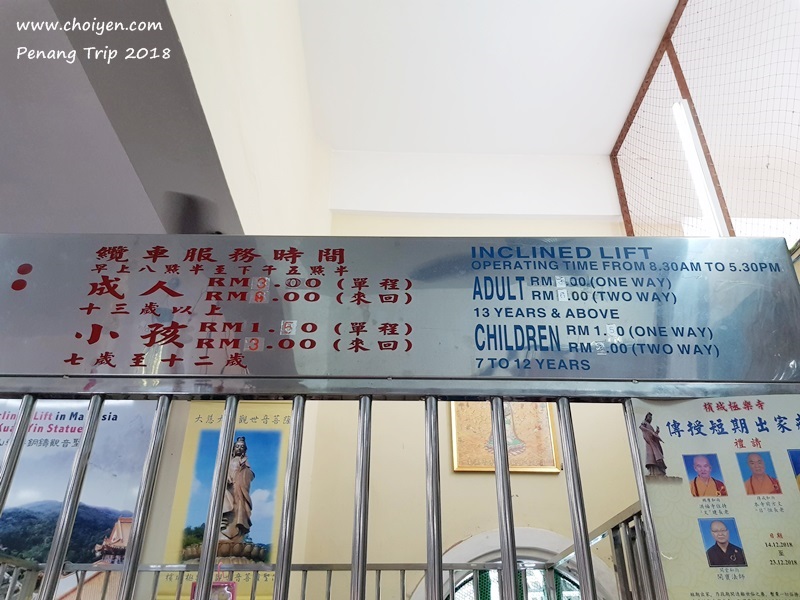 www.choiyen.com
Penang Trip 2018
纜車服務時間
早上八點半至下午五點半
成人 RM3.00 (單程)
RM6.00 (來回)
十三歲以上
小孩 RM1.50 (單程)
RM3.00 (來回)
七歲至十二歲
INCLINED LIFT
OPERATING TIME FROM 8.30AM TO 5.30PM
ADULT RM .00 (ONE WAY)
RM .00 (TWO WAY)
13 YEARS & ABOVE
CHILDREN RM 1. 0 (ONE WAY)
RM .00 (TWO WAY)
7 TO 12 YEARS
Lift in
Statue
銅鑄觀音聖
大慈大 觀世音菩薩
檳城極樂寺
傳授短期出家
禮請
日期
14.12.2018
至
23.12.2018